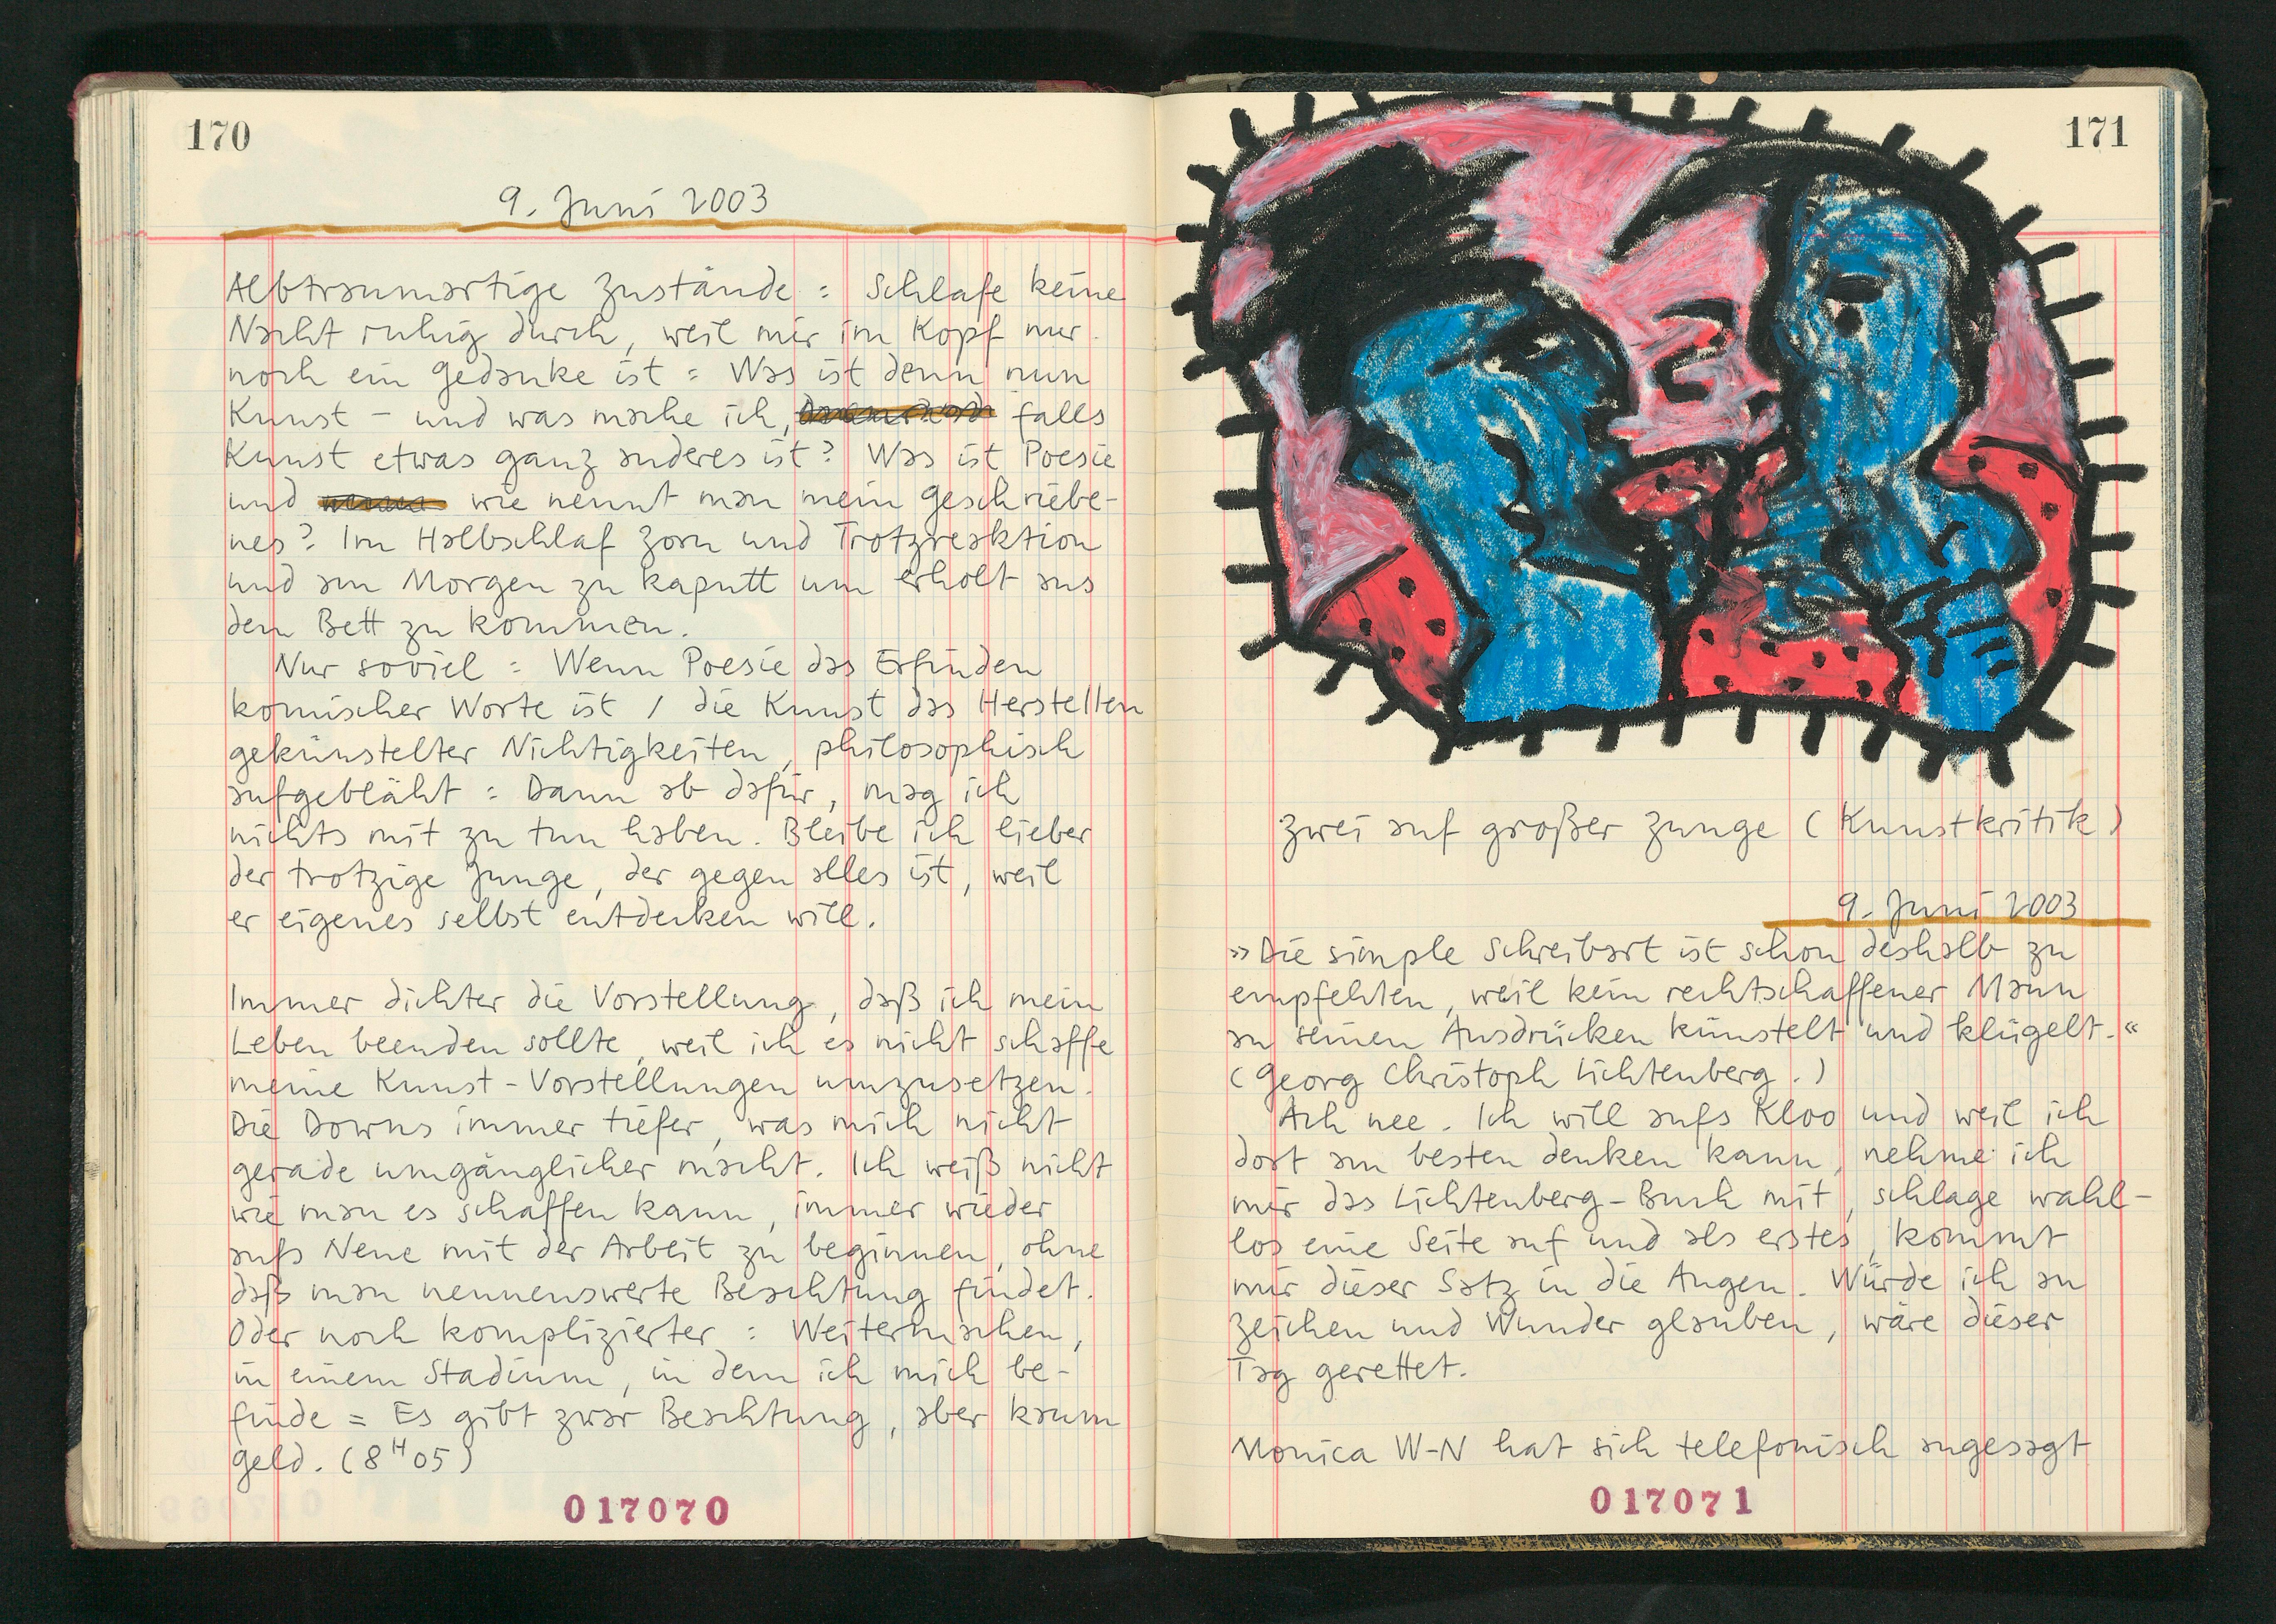 170
9. Juni 2003
Albtraumartige Zustände : Schlafe keine
Nacht ruhig durch, weil mir im Kopf nur
noch ein Gedanke ist : Was ist denn nun
Kunst – und was mache ich, falls
Kunst etwas ganz anderes ist? Was ist Poesie
und wie nennt man mein Geschriebe-
nes? Im Halbschlaf Zorn und Trotzreaktion
und am Morgen zu kaputt um erholt aus
dem Bett zu kommen.
Nur soviel : Wenn Poesie das Erfinden
komischer Worte ist / die Kunst das Herstellen
gekünstelter Nichtigkeiten, philosophisch
aufgebläht : Dann ab dafür, mag ich
nichts mit zu tun haben. Bleibe ich lieber
der trotzige Junge, der gegen alles ist, weil
er eigenes selbst entdecken will.
Immer dichter die Vorstellung, daß ich mein
Leben beenden sollte, weil ich es nicht schaffe
meine Kunst-Vorstellungen umzusetzen.
Die Downs immer tiefer, was mich nicht
gerade umgänglicher macht. Ich weiß nicht
wie man es schaffen kann, immer wieder
aufs Neue mit der Arbeit zu beginnen, ohne
daß man nennenswerte Beachtung findet.
Oder noch komplizierter : Weitermachen,
in einem Stadium, in dem ich mich be-
finde = Es gibt zwar Beachtung, aber kaum
Geld. (8 H 05)
017070
171
Zwei auf großer Zunge (Kunstkritik)
9. Juni 2003
»Die simple Schreibart ist schon deshalb zu
empfehlen, weil kein rechtschaffener Mann
an seinen Ausdrücken künstelt und klügelt.«
(Georg Christoph Lichtenberg.)
Ach nee. Ich will aufs Kloo und weil ich
dort am besten denken kann, nehme ich
mir das Lichtenberg-Buch mit, schlage wahl-
los eine Seite auf und als erstes, kommt
mir dieser Satz in die Augen. Würde ich an
Zeichen und Wunder glauben, wäre dieser
Tag gerettet.
Monica W-N hat sich telefonisch angesagt
017071